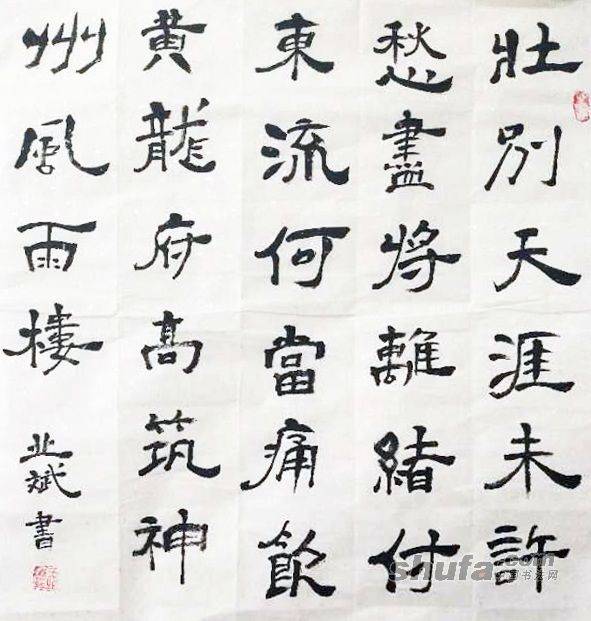 壯別天涯未許
愁盡將離緒付
東流何當痛飲
黃龍府高筑神
州風雨樓
业斌書
shufa.com
中国书法网